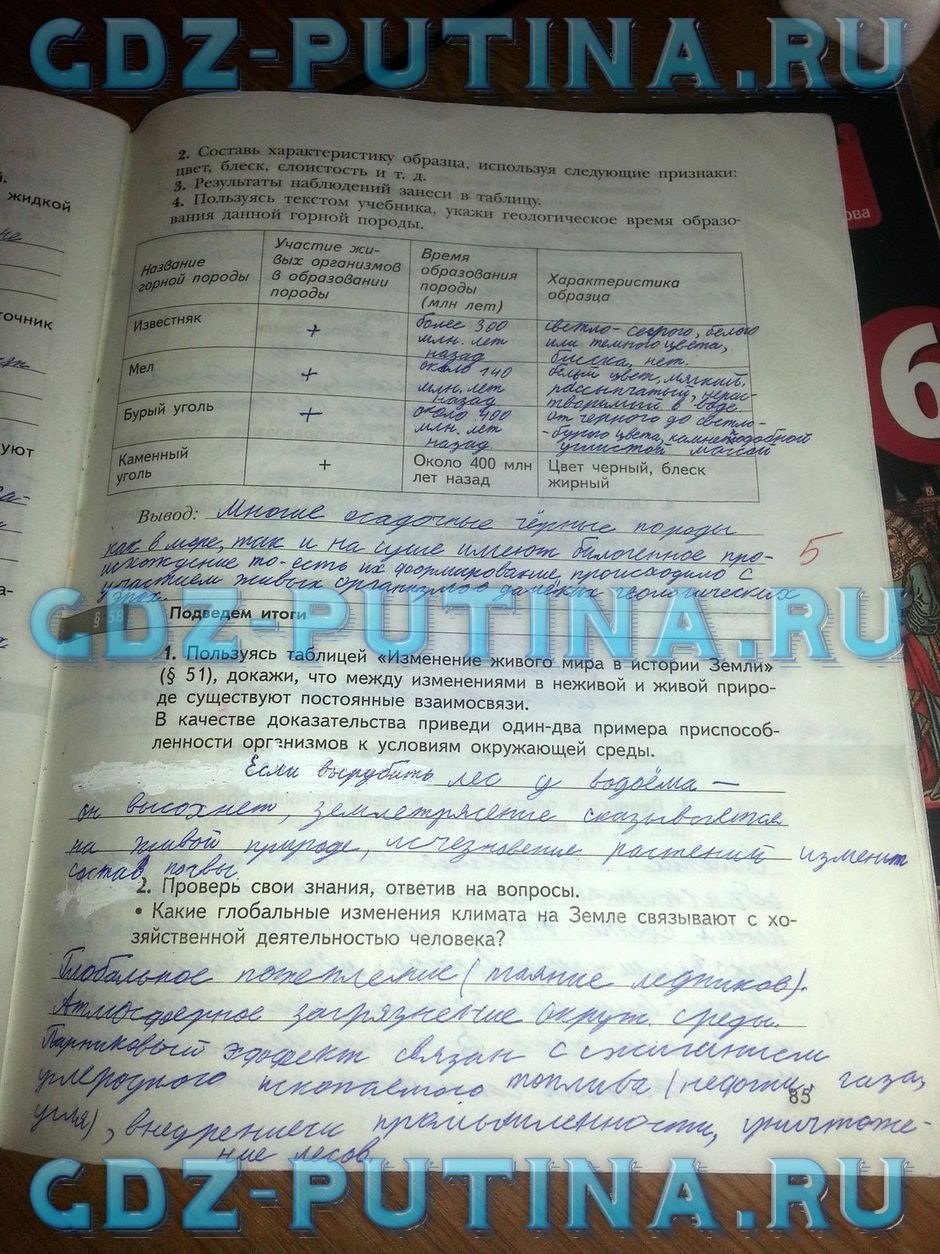 GDZ-PUTINA.RU
2. Составь характеристику образца, используя следующие признаки:
цвет, блеск, слоистость и т. д.
3. Результаты наблюдений занеси в таблицу.
4. Пользуясь текстом учебника, укажи геологическое время образо-
вания данной горной породы.
Название
горной породы
Участие жи-
вых организмов
в образовании
породы
Время
образования
породы
(млн лет)
Характеристика
образца
Известняк
+
более 300
млн. лет
назад
светло-серого, белого
или темного цвета,
блеска нет.
Мел
+
около 140
млн. лет
назад
белый цвет, мягкий,
рассыпчатый, нерас-
творимый в воде
Бурый уголь
+
около 400
млн. лет
назад
от черного до светло-
бурого цвета, камнеподобной
углистой массой
Каменный
уголь
+
Около 400 млн
лет назад
Цвет черный, блеск
жирный
Вывод: Многие осадочные чёрные породы
как в море, так и на суше имеют биогенное про-
исхождение то-есть их формирование происходило с
участием живых организмов далёких геологических
эрах.
5
GDZ-PUTINA.RU
§ 58
Подведем итоги
1. Пользуясь таблицей «Изменение живого мира в истории Земли»
(§ 51), докажи, что между изменениями в неживой и живой приро-
де существуют постоянные взаимосвязи.
В качестве доказательства приведи один-два примера приспособ-
ленности организмов к условиям окружающей среды.
Если вырубить лес у водоёма —
он высохнет, землетрясение сказывается
на живой природе, исчезновение растений изменит
состав почвы.
2. Проверь свои знания, ответив на вопросы.
• Какие глобальные изменения климата на Земле связывают с хо-
зяйственной деятельностью человека?
Глобальное потепление (таяние ледников).
Атмосферное загрязнение окруж. среды.
Парниковый эффект связан с сжиганием
углеродного ископаемого топлива (нефти, газа,
угля), внедрением промышленности, уничтоже-
ние лесов.
85
GDZ-PUTINA.RU
жидкой
точник
уют
ова
6